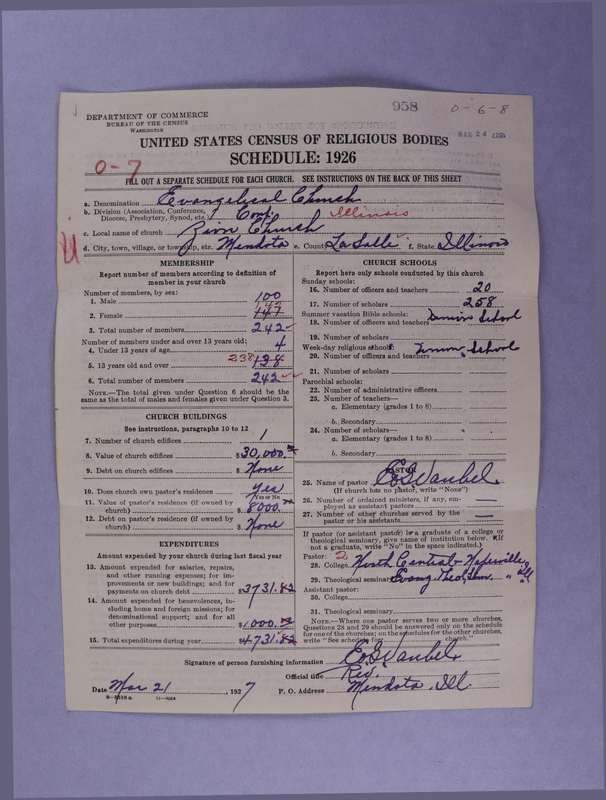 958 0-6-8
DEPARTMENT OF COMMERCE
BUREAU OF THE CENSUS
WASHINGTON
MAR 24
UNITED STATES CENSUS OF RELIGIOUS BODIES
SCHEDULE: 1926
0-7
FILL OUT A SEPARATE SCHEDULE FOR EACH CHURCH. SEE INSTRUCTIONS ON THE BACK OF THIS SHEET
a. Denomination Evangelical Church
b. Division (Association, Conference, Diocese, Presbytery, Synod, etc.) Conf. Illinois
c. Local name of church Zion Church
d. City, town, village, or township, etc. Mendota e. County LaSalle f. State Illinois
MEMBERSHIP
Report number of members according to definition of
member in your church
Number of members, by sex:
1. Male 100
142
2. Female 147
3. Total number of members 242
Number of members under and over 13 years old:
4. Under 13 years of age 4
5. 13 years old and over 238 138
6. Total number of members 242
NOTE.—The total given under Question 6 should be the
same as the total of males and females given under Question 3.
CHURCH BUILDINGS
See instructions, paragraphs 10 to 12
7. Number of church edifices 1
8. Value of church edifices $30,000.
9. Debt on church edifices $ None
10. Does church own pastor's residence Yes
Yes or No
11. Value of pastor's residence (if owned by
church) $ 8000.
12. Debt on pastor's residence (if owned by
church) $ None
EXPENDITURES
Amount expended by your church during last fiscal year
13. Amount expended for salaries, repairs,
and other running expenses; for im-
provements or new buildings; and for
payments on church debt $3731.82
14. Amount expended for benevolences, in-
cluding home and foreign missions; for
denominational support; and for all
other purposes $1000.
15. Total expenditures during year $4731.82
CHURCH SCHOOLS
Report here only schools conducted by this church
Sunday schools:
16. Number of officers and teachers 20
17. Number of scholars 258
Summer vacation Bible schools:
18. Number of officers and teachers School
19. Number of scholars
Week-day religious schools:
20. Number of officers and teachers School
21. Number of scholars
Parochial schools:
22. Number of administrative officers
23. Number of teachers—
a. Elementary (grades 1 to 8)
b. Secondary
24. Number of scholars—
a. Elementary (grades 1 to 8)
b. Secondary
PASTOR
25. Name of pastor
(If church has no pastor, write "None")
26. Number of ordained ministers, if any, em-
ployed as assistant pastors —
27. Number of other churches served by the
pastor or his assistants —
If pastor (or assistant pastor) is a graduate of a college or
theological seminary, give name of institution below. (If
not a graduate, write "No" in the space indicated.)
Pastor: 2
28. College North Central Naperville, Ill
29. Theological seminary Evang. Theo. Sem. " "
Assistant pastor:
30. College
31. Theological seminary
NOTE.—Where one pastor serves two or more churches,
Questions 28 and 29 should be answered only on the schedule
for one of the churches; on the schedules for the other churches,
write "See schedule for church."
Signature of person furnishing information
Official title Rev.
Date Mar 21, 1927 P. O. Address Mendota, Ill.